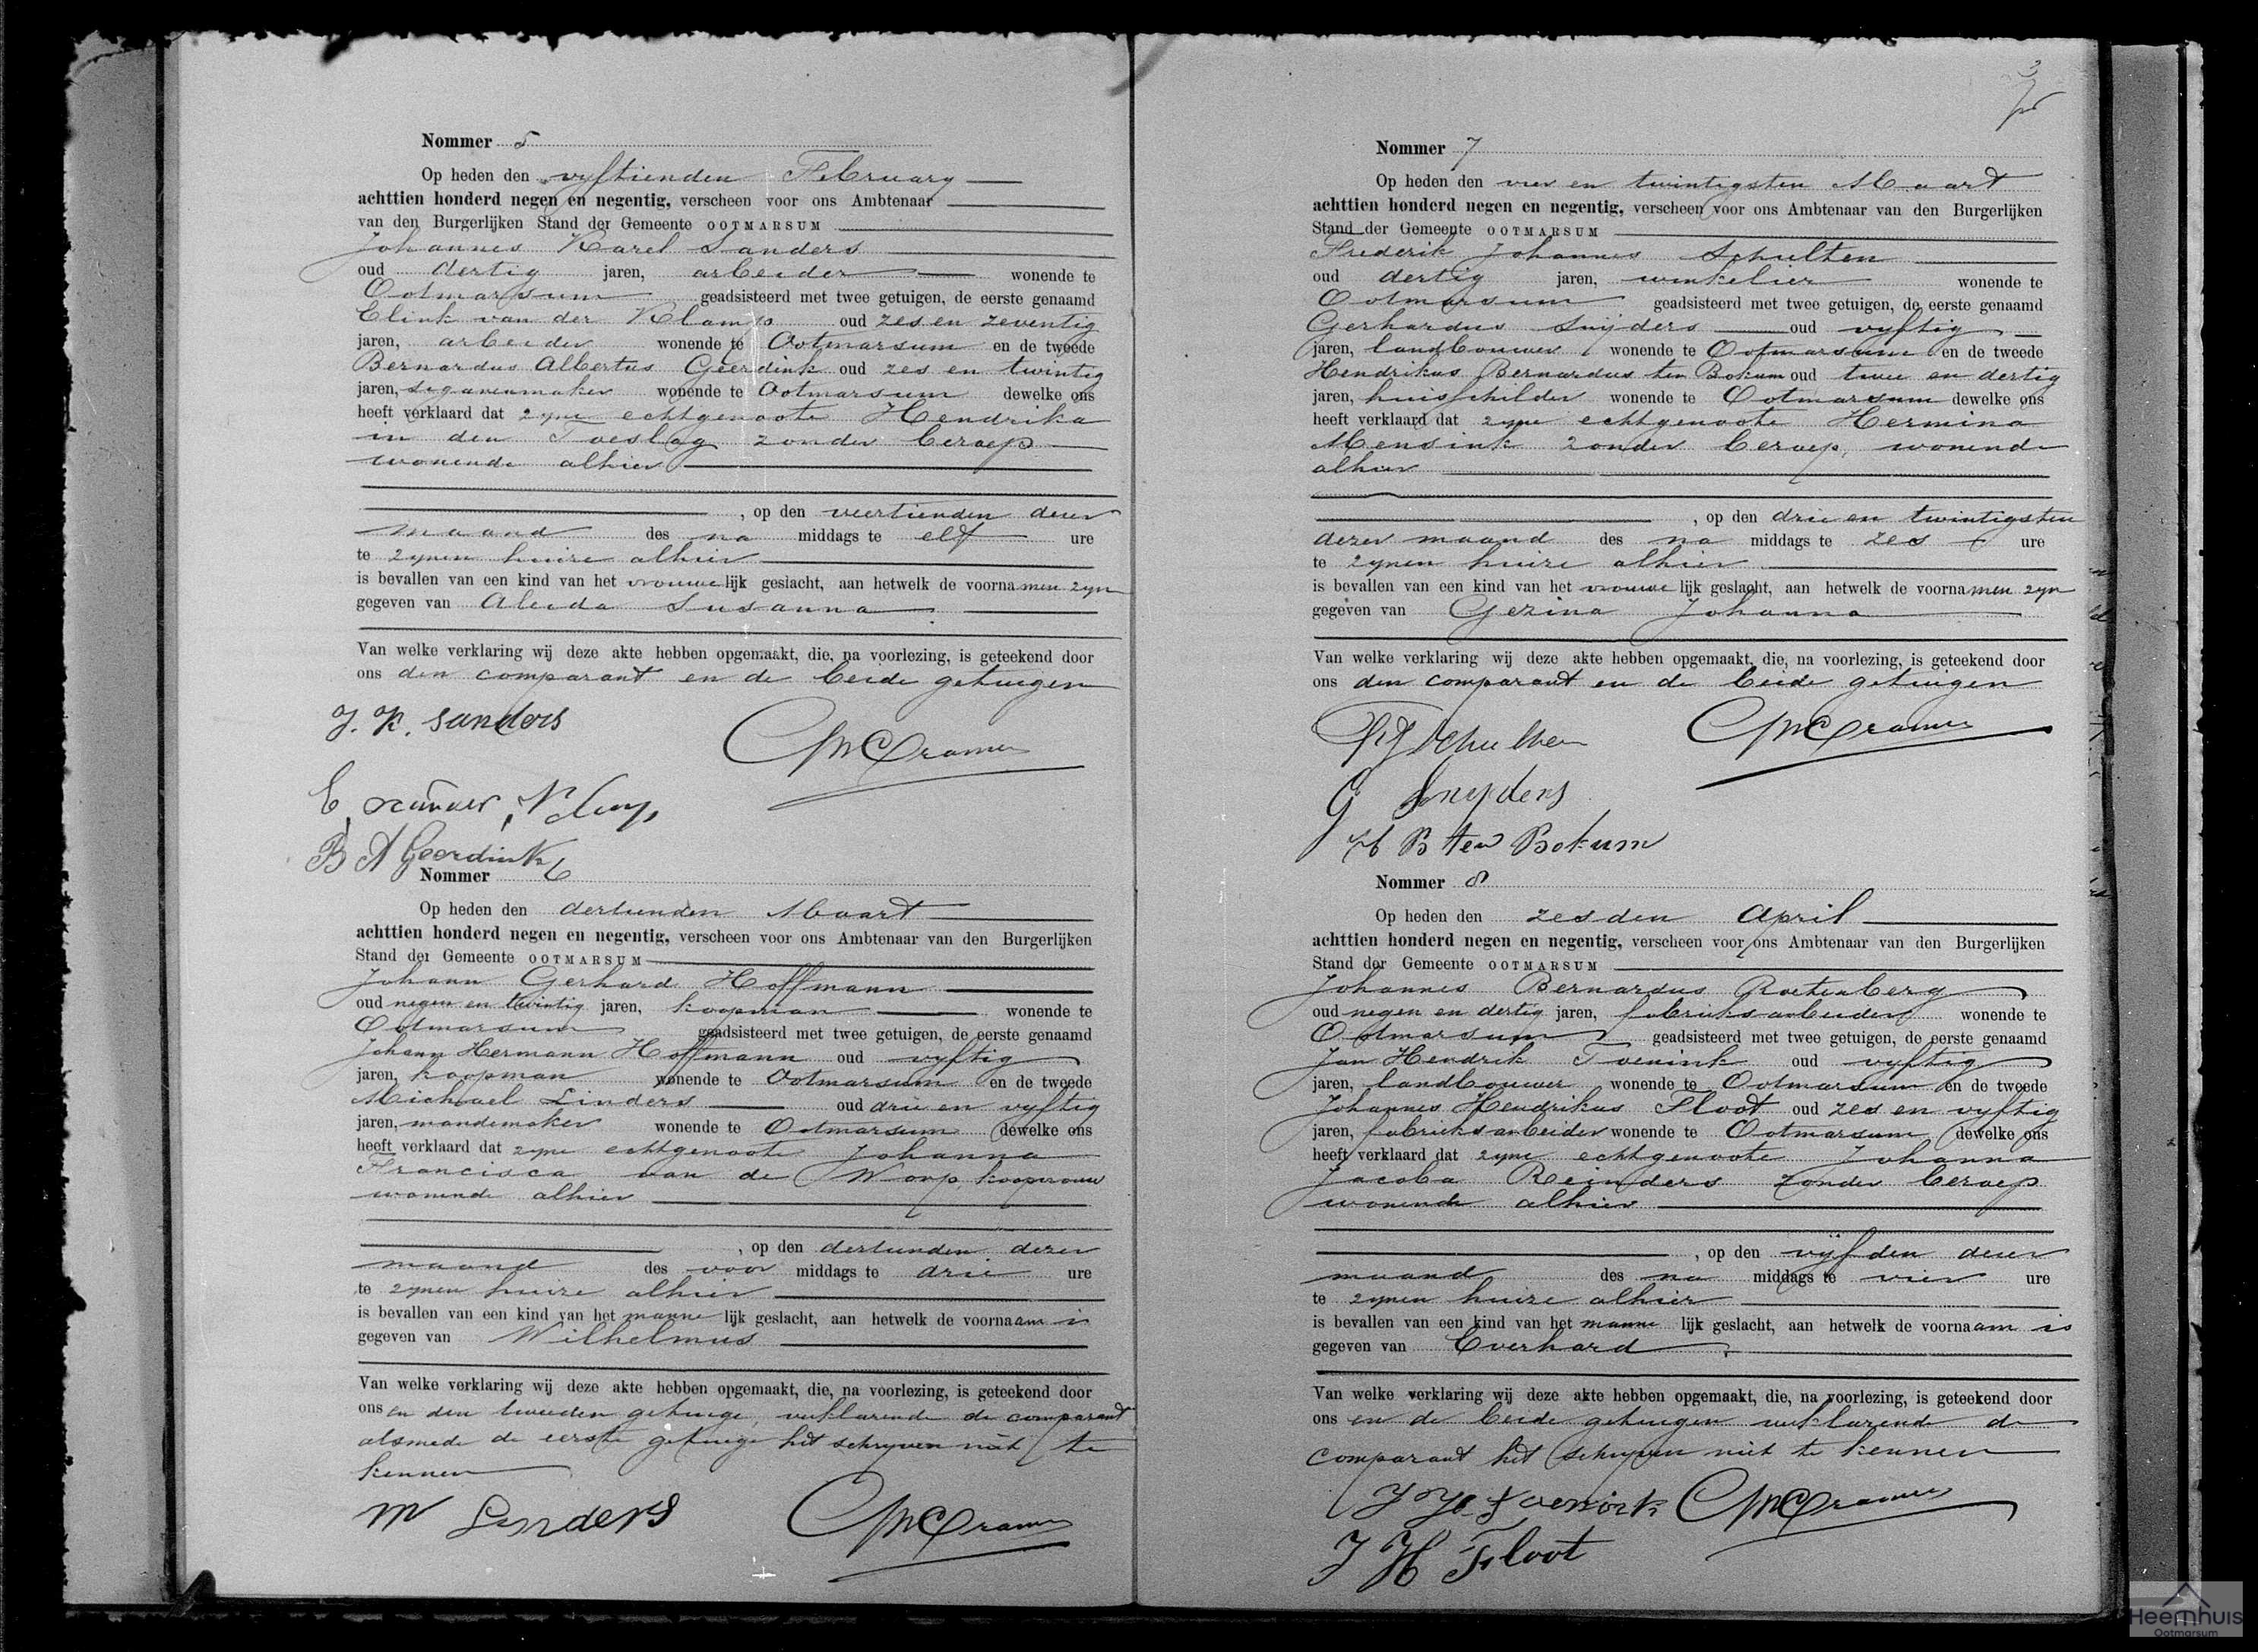 Nommer 5
Op heden den vyftienden February
achttien honderd negen en negentig, verscheen voor ons Ambtenaar
van den Burgerlijken Stand der Gemeente OOTMARSUM
Johannes Karel Sanders
oud dertig jaren, arbeider wonende te
Ootmarsum geadsisteerd met twee getuigen, de eerste genaamd
Elink van der Klamp oud zes en zeventig
jaren, arbeider wonende te Ootmarsum en de tweede
Bernardus Albertus Geerdink oud zes en twintig
jaren, siganenmaker wonende te Ootmarsum dewelke ons
heeft verklaard dat zyne echtgenoote Hendrika
in den Toeslag zonder beroep
wonende alhier
, op den veertienden dezer
maand des na middags te elf ure
te zynen huize alhier
is bevallen van een kind van het vrouwelijk geslacht, aan hetwelk de voornamen zyn
gegeven van Aleida Susanna
Van welke verklaring wij deze akte hebben opgemaakt, die, na voorlezing, is geteekend door
ons den comparant en de beide getuigen
J. K. Sanders
CMCramer
B A Geerdink
Nommer 6
Op heden den dertienden Maart
achttien honderd negen en negentig, verscheen voor ons Ambtenaar van den Burgerlijken
Stand der Gemeente OOTMARSUM
Johann Gerhard Hoffmann
oud negen en twintig jaren, koopman wonende te
Ootmarsum geadsisteerd met twee getuigen, de eerste genaamd
Johann Hermann Hoffmann oud vyftig
jaren, koopman wonende te Ootmarsum en de tweede
Michael Linders oud drie en vyftig
jaren, mandemaker wonende te Ootmarsum dewelke ons
heeft verklaard dat zyne echtgenoote Johanna
Francisca van de Worp koopvrouw
wonende alhier
, op den dertienden dezer
maand des voor middags te drie ure
te zynen huize alhier
is bevallen van een kind van het mannelijk geslacht, aan hetwelk de voornaam is
gegeven van Wilhelmus
Van welke verklaring wij deze akte hebben opgemaakt, die, na voorlezing, is geteekend door
ons en den tweeden getuige, verklarende de comparant
alsmede de eerste getuige het schryven niet te
kennen
M Lenders CMCramer
Nommer 7
Op heden den vier en twintigsten Maart
achttien honderd negen en negentig, verscheen voor ons Ambtenaar van den Burgerlijken
Stand der Gemeente OOTMARSUM
Frederik Johannes Schulten
oud dertig jaren, winkelier wonende te
Ootmarsum geadsisteerd met twee getuigen, de eerste genaamd
Gerhardus Snijders oud vyftig
jaren, landbouwer wonende te Ootmarsum en de tweede
Hendrikus Bernardus ten Bokum oud twee en dertig
jaren, huisschilder wonende te Ootmarsum dewelke ons
heeft verklaard dat zyne echtgenoote Hermina
Mensink zonder beroep, wonende
alhier
, op den drie en twintigsten
dezer maand des na middags te zes ure
te zynen huize alhier
is bevallen van een kind van het vrouwelijk geslacht, aan hetwelk de voornamen zyn
gegeven van Gezina Johanna
Van welke verklaring wij deze akte hebben opgemaakt, die, na voorlezing, is geteekend door
ons den comparant en de beide getuigen
FJSchulten CMCramer
G Snyders
H B ten Bokum
Nommer 8
Op heden den zesden April
achttien honderd negen en negentig, verscheen voor ons Ambtenaar van den Burgerlijken
Stand der Gemeente OOTMARSUM
Johannes Bernardus Roetenberg
oud negen en dertig jaren, fabrieksarbeider wonende te
Ootmarsum geadsisteerd met twee getuigen, de eerste genaamd
Jan Hendrik Toenink oud vyftig
jaren, landbouwer wonende te Ootmarsum en de tweede
Johannes Hendrikus Floot oud zes en vyftig
jaren, fabrieksarbeider wonende te Ootmarsum dewelke ons
heeft verklaard dat zyne echtgenoote Johanna
Jacoba Reinders zonder beroep
wonende alhier
, op den vijfden dezer
maand des na middags te vier ure
te zynen huize alhier
is bevallen van een kind van het mannelijk geslacht, aan hetwelk de voornaam is
gegeven van Everhard
Van welke verklaring wij deze akte hebben opgemaakt, die, na voorlezing, is geteekend door
ons en de beide getuigen verklarende de
comparant het schryven niet te kennen
J H Toenink CMCramer
J H Floot
Heemhuis
Ootmarsum